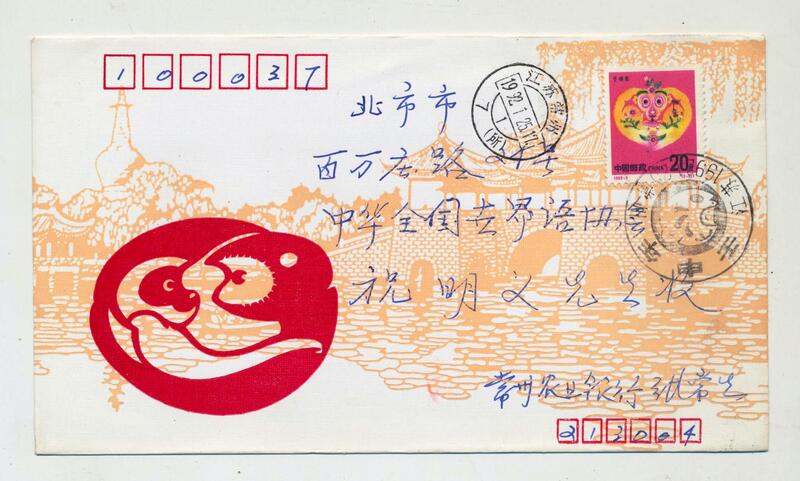 100037
北京市
百万庄路24号
中华全国世界语协会
祝明义先生收
常州农业银行张常生
213004
江苏常州
1992.1.25
7 1
(所)
壬申年
中国邮政 CHINA
20分
1992-1
江苏 199
壬申年